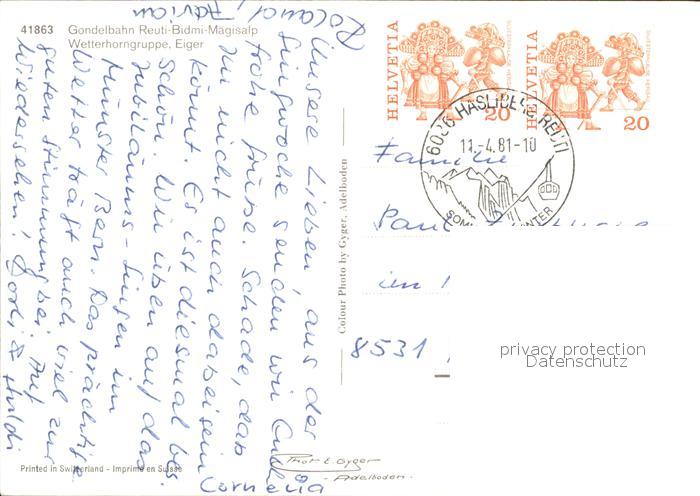 41863 Gondelbahn Reuti-Bidmi-Mägisalp
Wetterhorngruppe, Eiger
Unsere Lieben, aus der
Singwoche senden wir Euch
frohe Grüsse. Schade, dass
Ihr nicht auch dabei sein
könnt. Es ist diesmal bes.
schön. Wir üben auf das
Jubiläums-Singen im
Münster Bern. Das prächtige
Wetter trägt auch viel zur
guten Stimmung bei. Auf
Wiedersehen,
Cornelia
Roland, Florian
Printed in Switzerland - Imprimé en Suisse
Colour Photo by Gyger, Adelboden
HELVETIA 20
HELVETIA 20
6086 HASLIBERG REUTI
11.-4.81-10
Familie
Paul
im
8531
privacy protection
Datenschutz
Phot E. Gyger
- Adelboden -